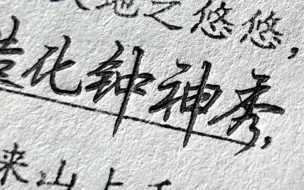 地之悠悠，
造化钟神秀，
来山上